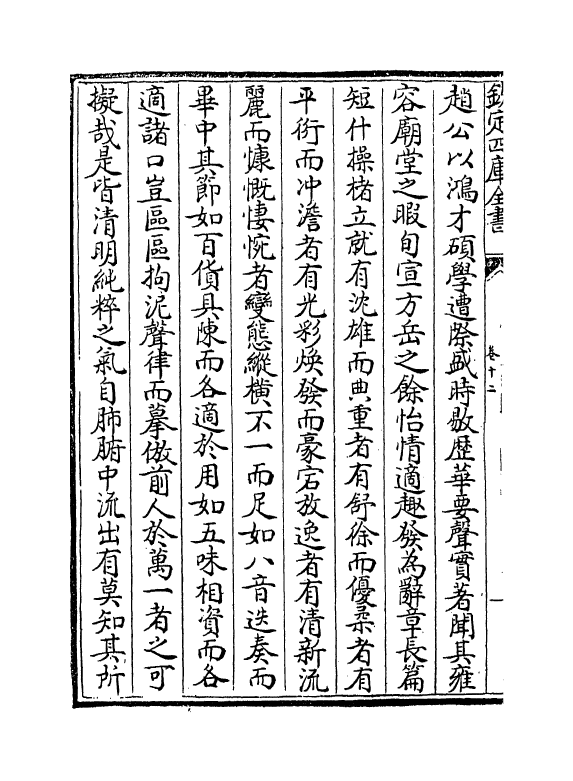 欽定四庫全書
卷十二
趙公以鴻才碩學遭際盛時敭歴華要聲實著聞其雍
容廟堂之暇旬宣方岳之餘怡情適趣發為辭章長篇
短什操楮立就有沈雄而典重者有舒徐而優柔者有
平衍而冲澹者有光彩煥發而豪宕放逸者有清新流
麗而慷慨悽惋者變態縱横不一而足如八音迭奏而
畢中其節如百貨具陳而各適於用如五味相資而各
適諸口豈區區拘泥聲律而摹倣前人於萬一者之可
擬哉是皆清明純粹之氣自肺腑中流出有莫知其所